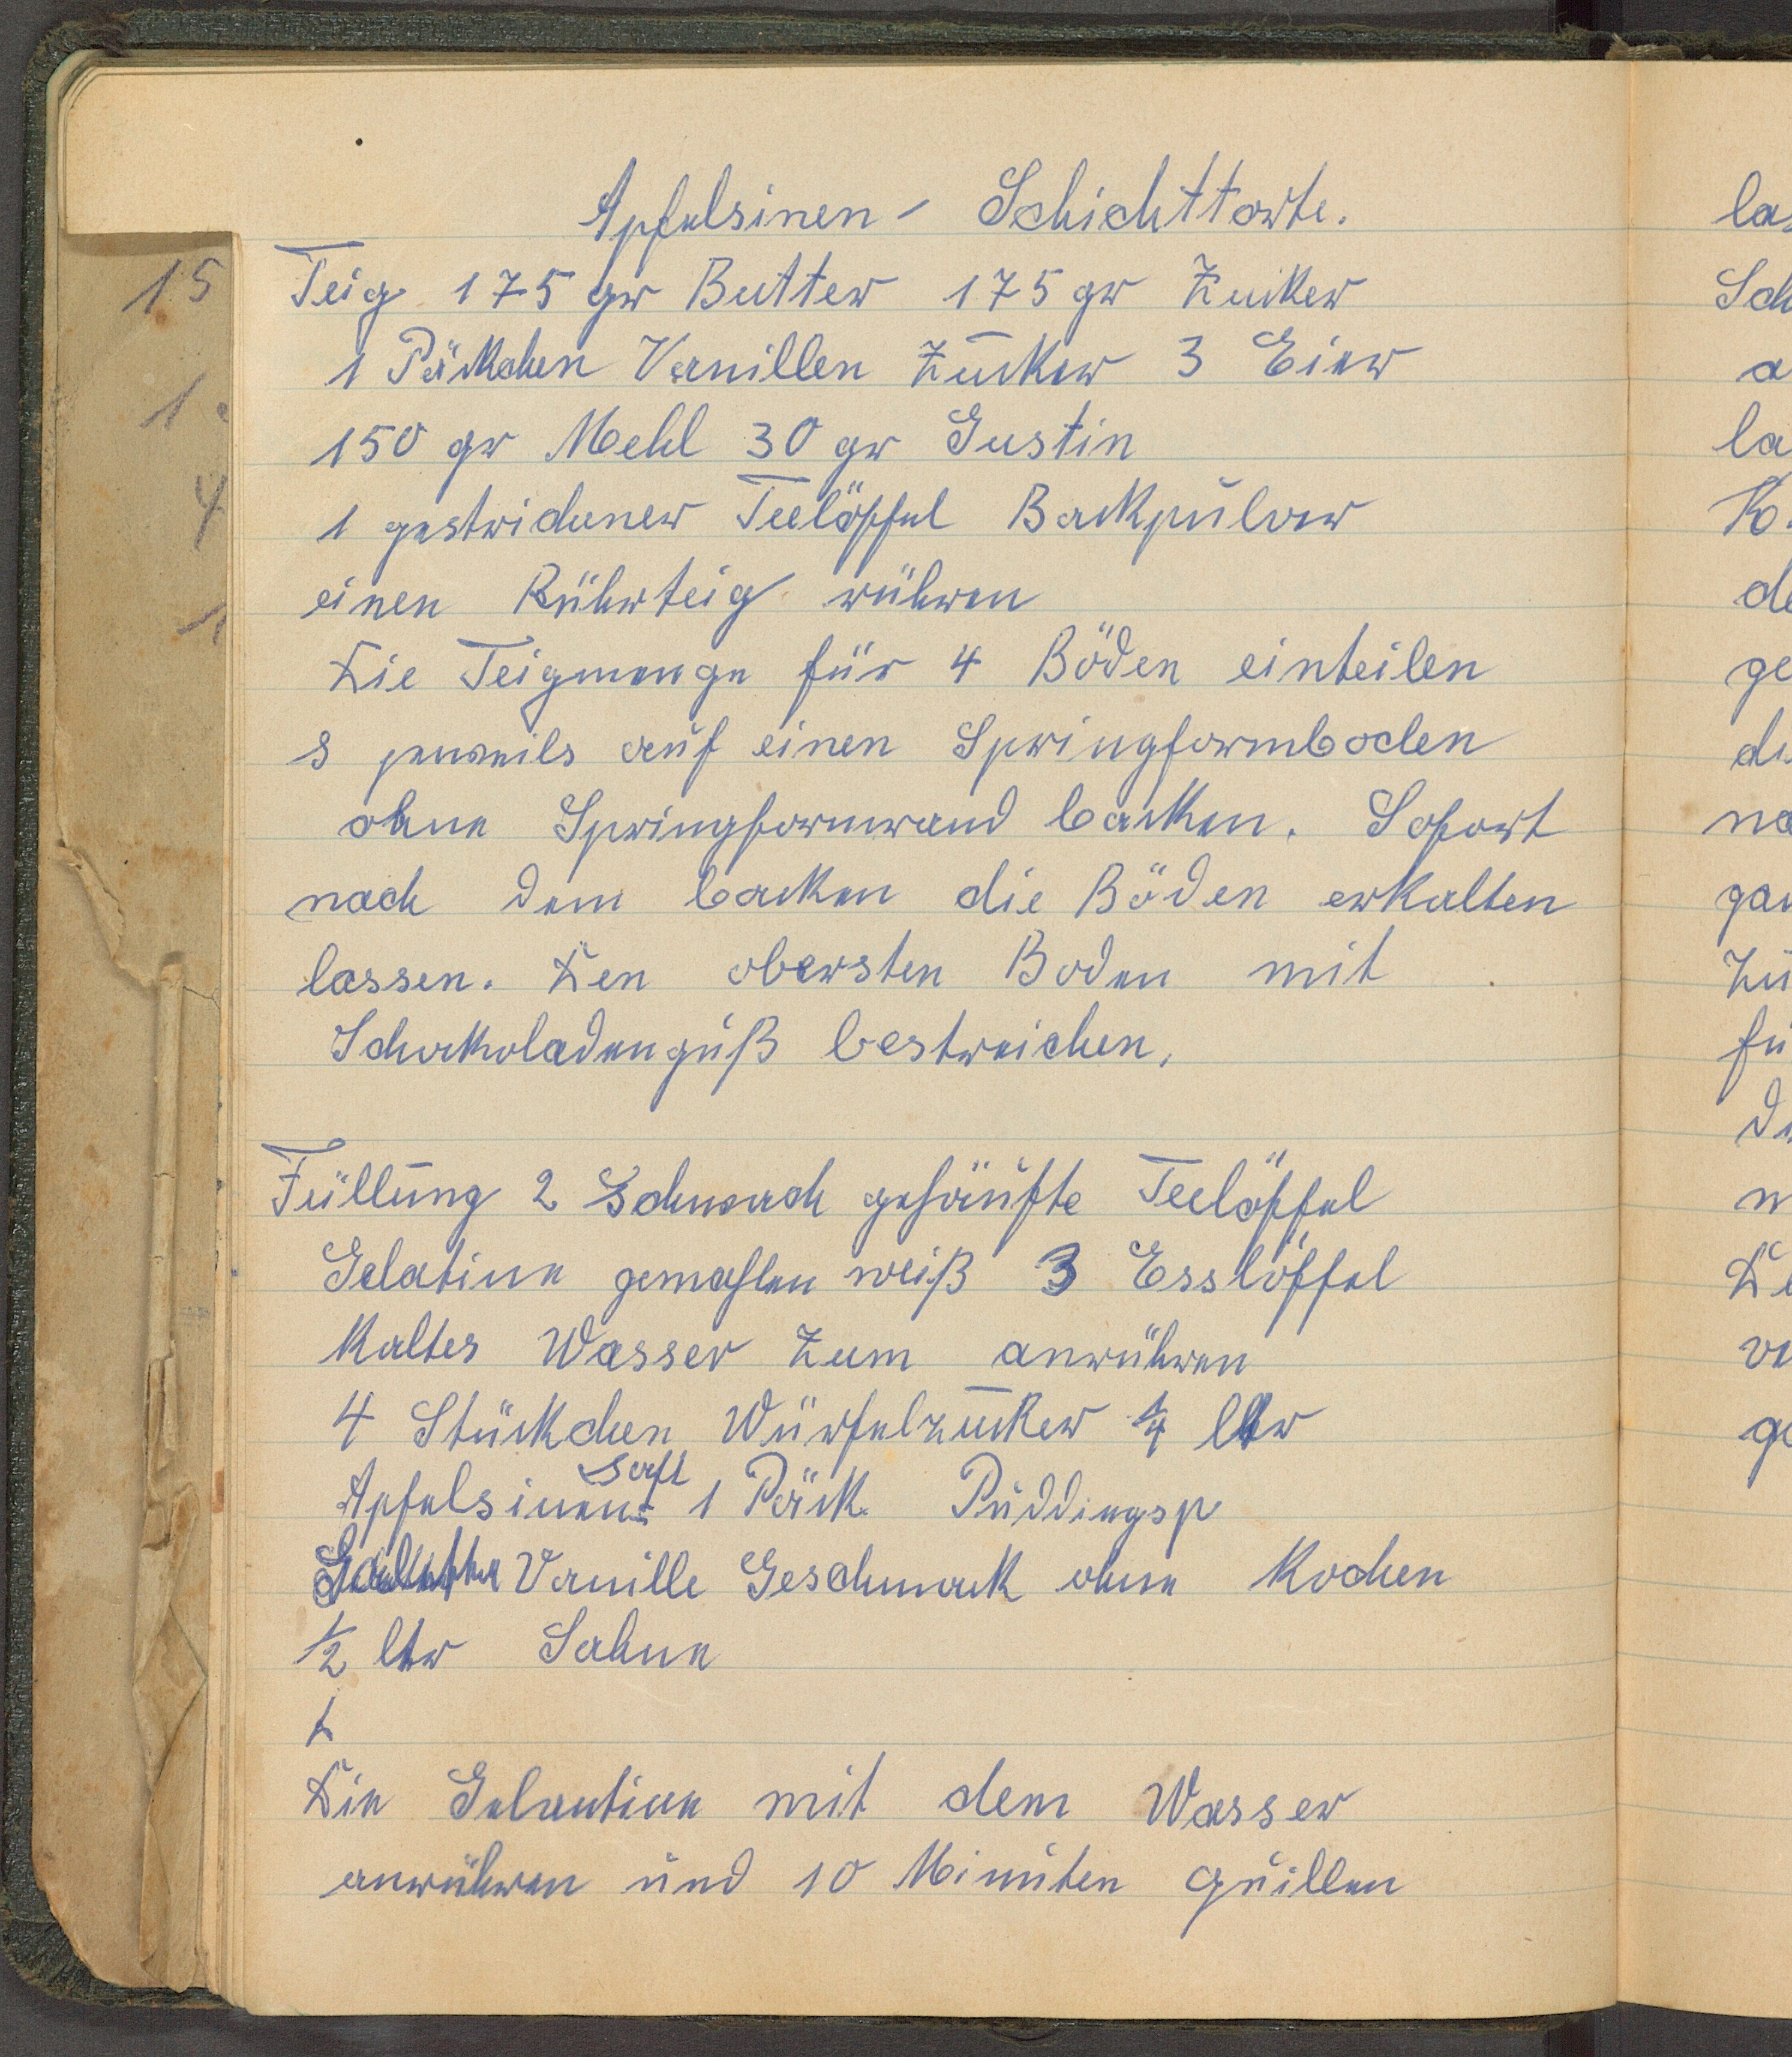 Apfelsinen - Schichttorte.
Teig 175 gr Butter 175 gr Zucker
1 Päckchen Vanillen Zucker 3 Eier
150 gr Mehl 30 gr Gustin
1 gestrichener Teelöffel Backpulver
einen Rührteig rühren
Die Teigmenge für 4 Böden einteilen
s jeweils auf einen Springformboden
ohne Springformwand backen. Sofort
nach dem backen die Böden erkalten
lassen. Den obersten Boden mit
Schokoladenguß bestreichen.
Füllung 2 Schwach gehäufte Teelöffel
Gelatine gemahlen weiß 3 Esslöffel
Kaltes Wasser Zum anrühren
4 Stückchen Würfelzucker 1/4 ltr
saft
Apfelsinen 1 Päck Puddingsp
Vanille Geschmack ohne Kochen
1/2 ltr Sahne
Die Gelantine mit dem Wasser
anrühren und 10 Minuten quillen
15
1
4
1
la
Sch
a
la
K
de
ge
du
na
gan
Zu
fü
m
ge